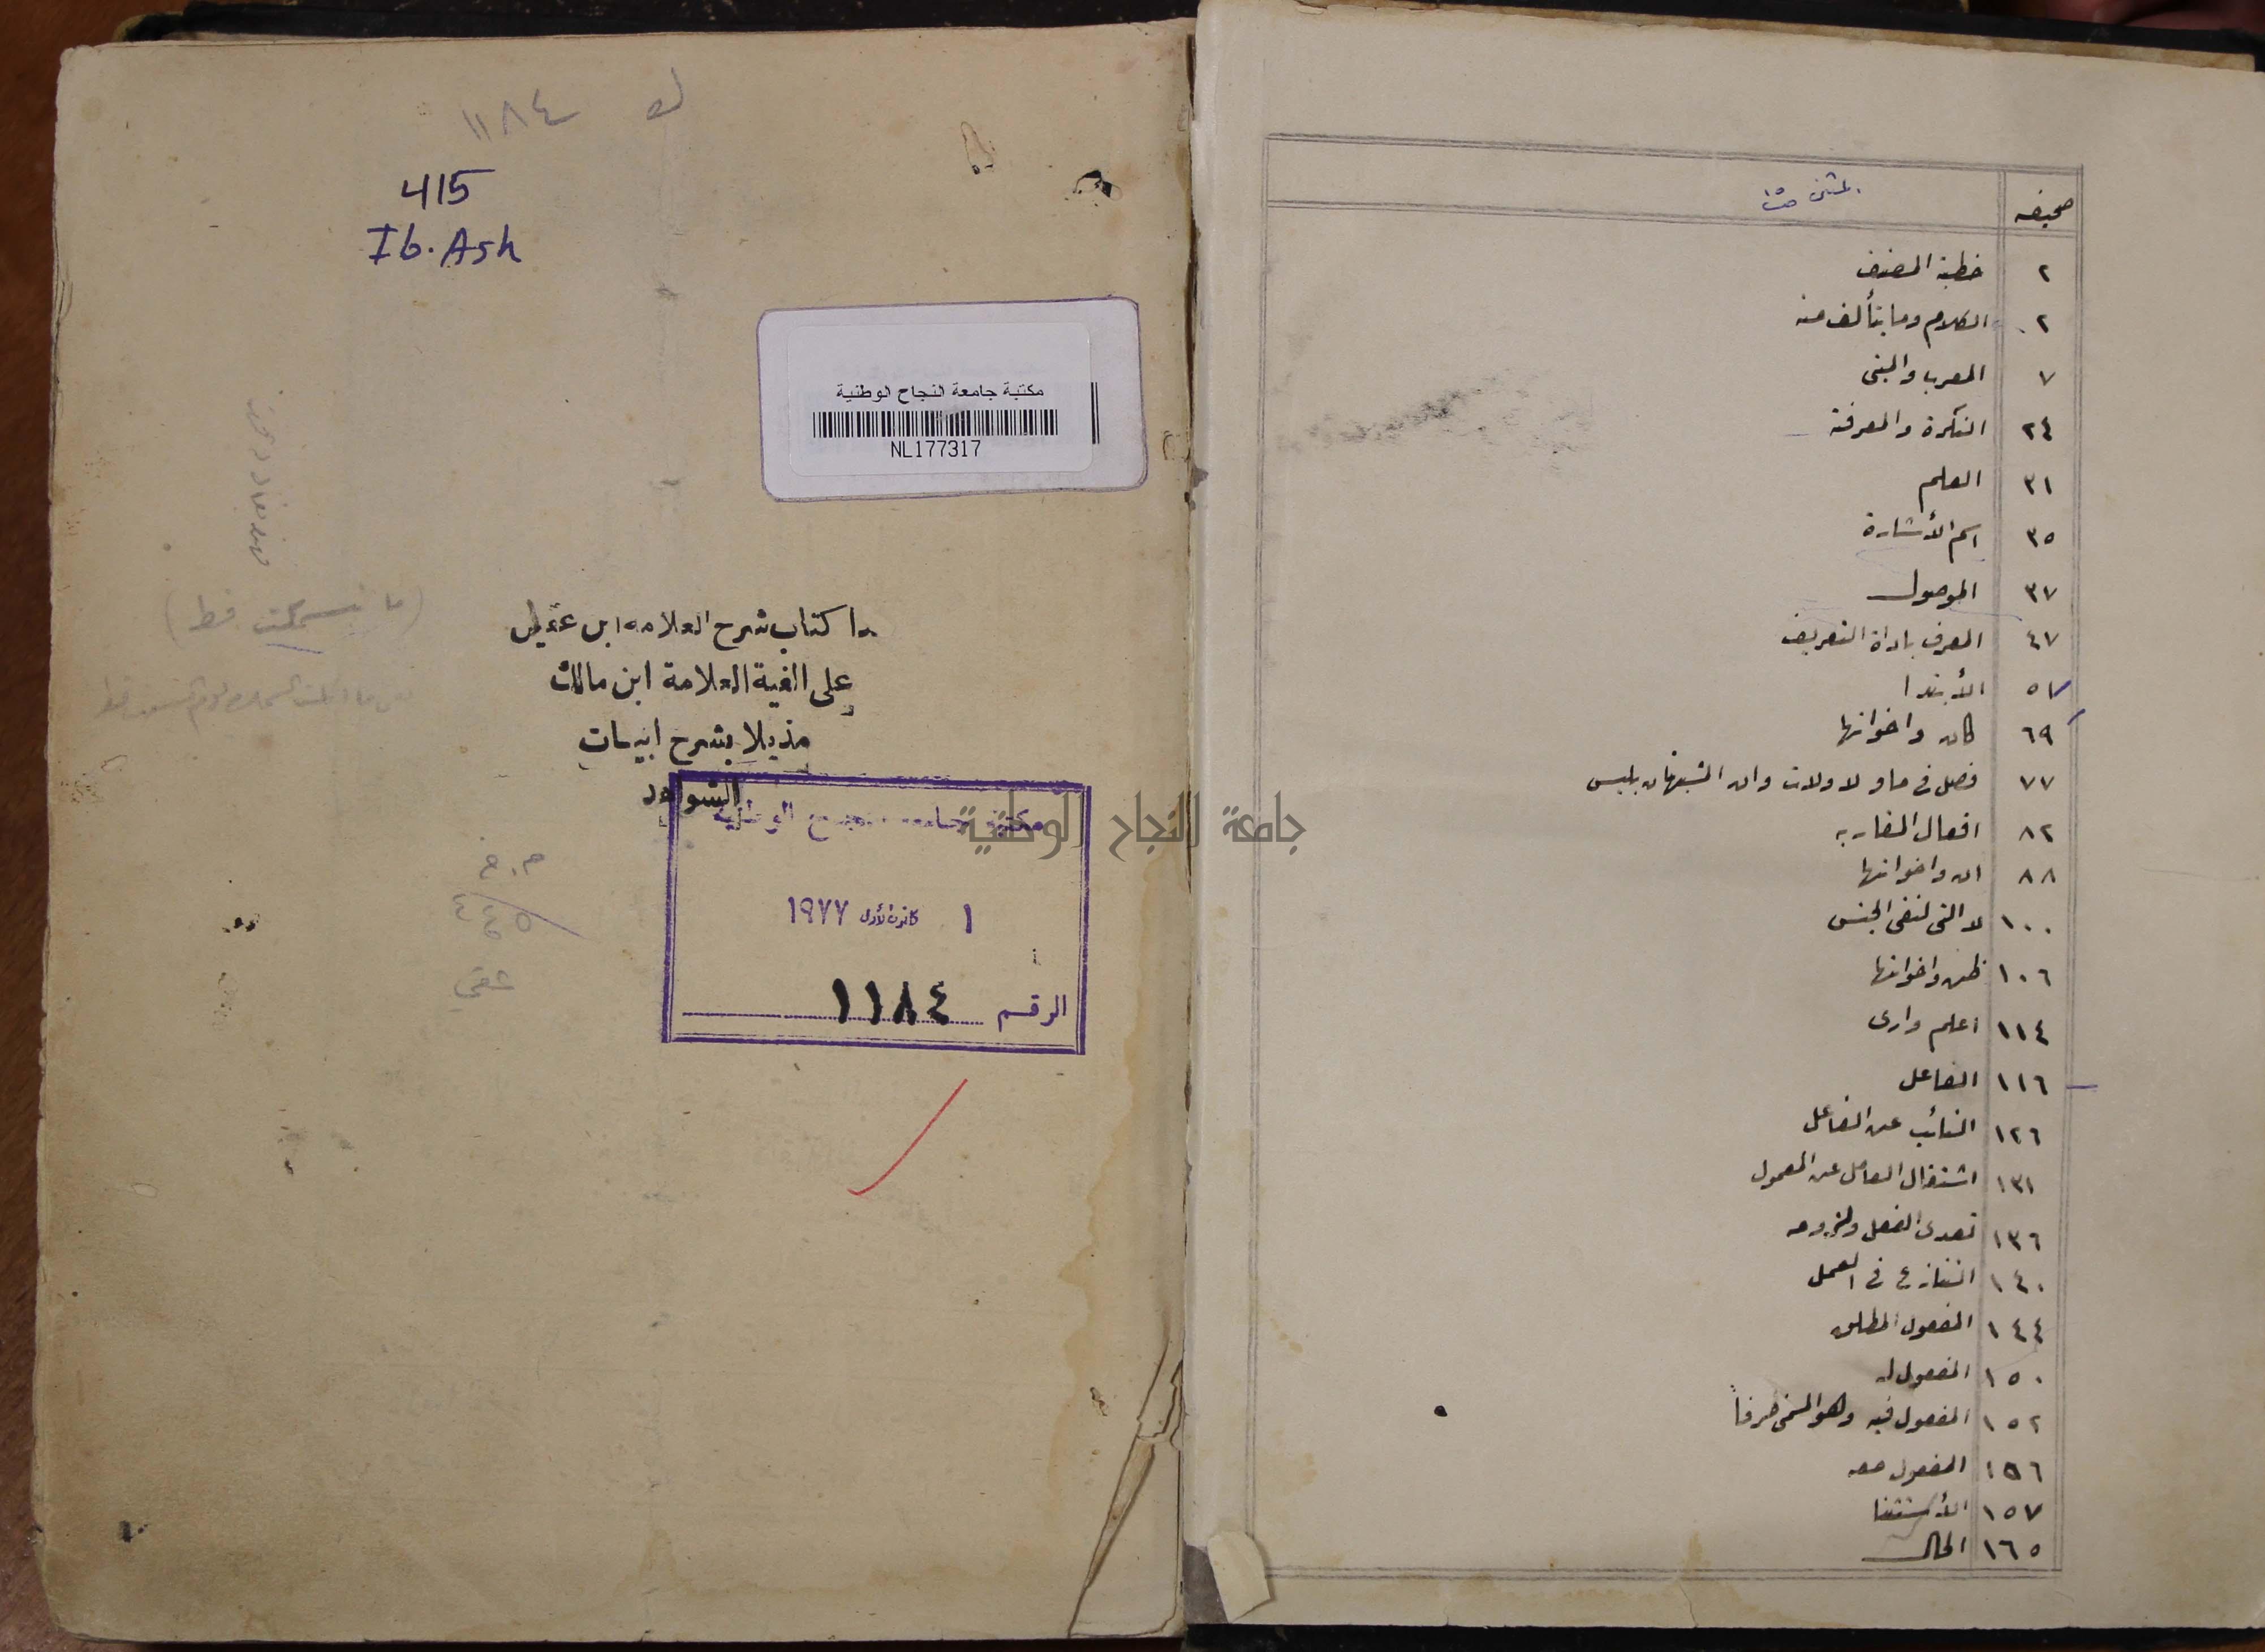 صحيفه
المثنى ص ١٥
٢ خطبة المصنف
٢ الكلام وما يتألف منه
٧ المعرب والمبنى
٢٤ النكرة والمعرفة
٣١ العلم
٣٥ اسم الأشارة
٣٧ الموصول
٤٧ المعرف باداة التعريف
٥٧ الأبتدا
٦٩ كان واخواتها
٧٧ فصل فى ما ولا ولات وان المشبهات بليس
٨٢ افعال المقاربه
٨٨ ان واخواتها
١٠٠ لا التى لنفى الجنس
١٠٦ ظن واخواتها
١١٤ اعلم وارى
١١٦ الفاعل
١٢٦ النائب عن الفاعل
١٣١ اشتغال العامل عن المعمول
١٣٦ تعدى الفعل ولزومه
١٤٠ التنازع فى العمل
١٤٤ المفعول المطلق
١٥٠ المفعول له
١٥٢ المفعول فيه وهو المسمى ظرفاً
١٥٦ المفعول معه
١٥٧ الأستثنا
١٦٥ الحال
١١٨٤
415
Ib. Ash
مكتبة جامعة النجاح الوطنية
NL177317
كتاب شرح العلامه ابن عقيل
على الفية العلامة ابن مالك
مذيلا بشرح ابيات
الشواهد
مكتبة جامعة النجاح الوطنية
١ كانون الأول ١٩٧٧
الرقم ١١٨٤
جامعة النجاح الوطنية